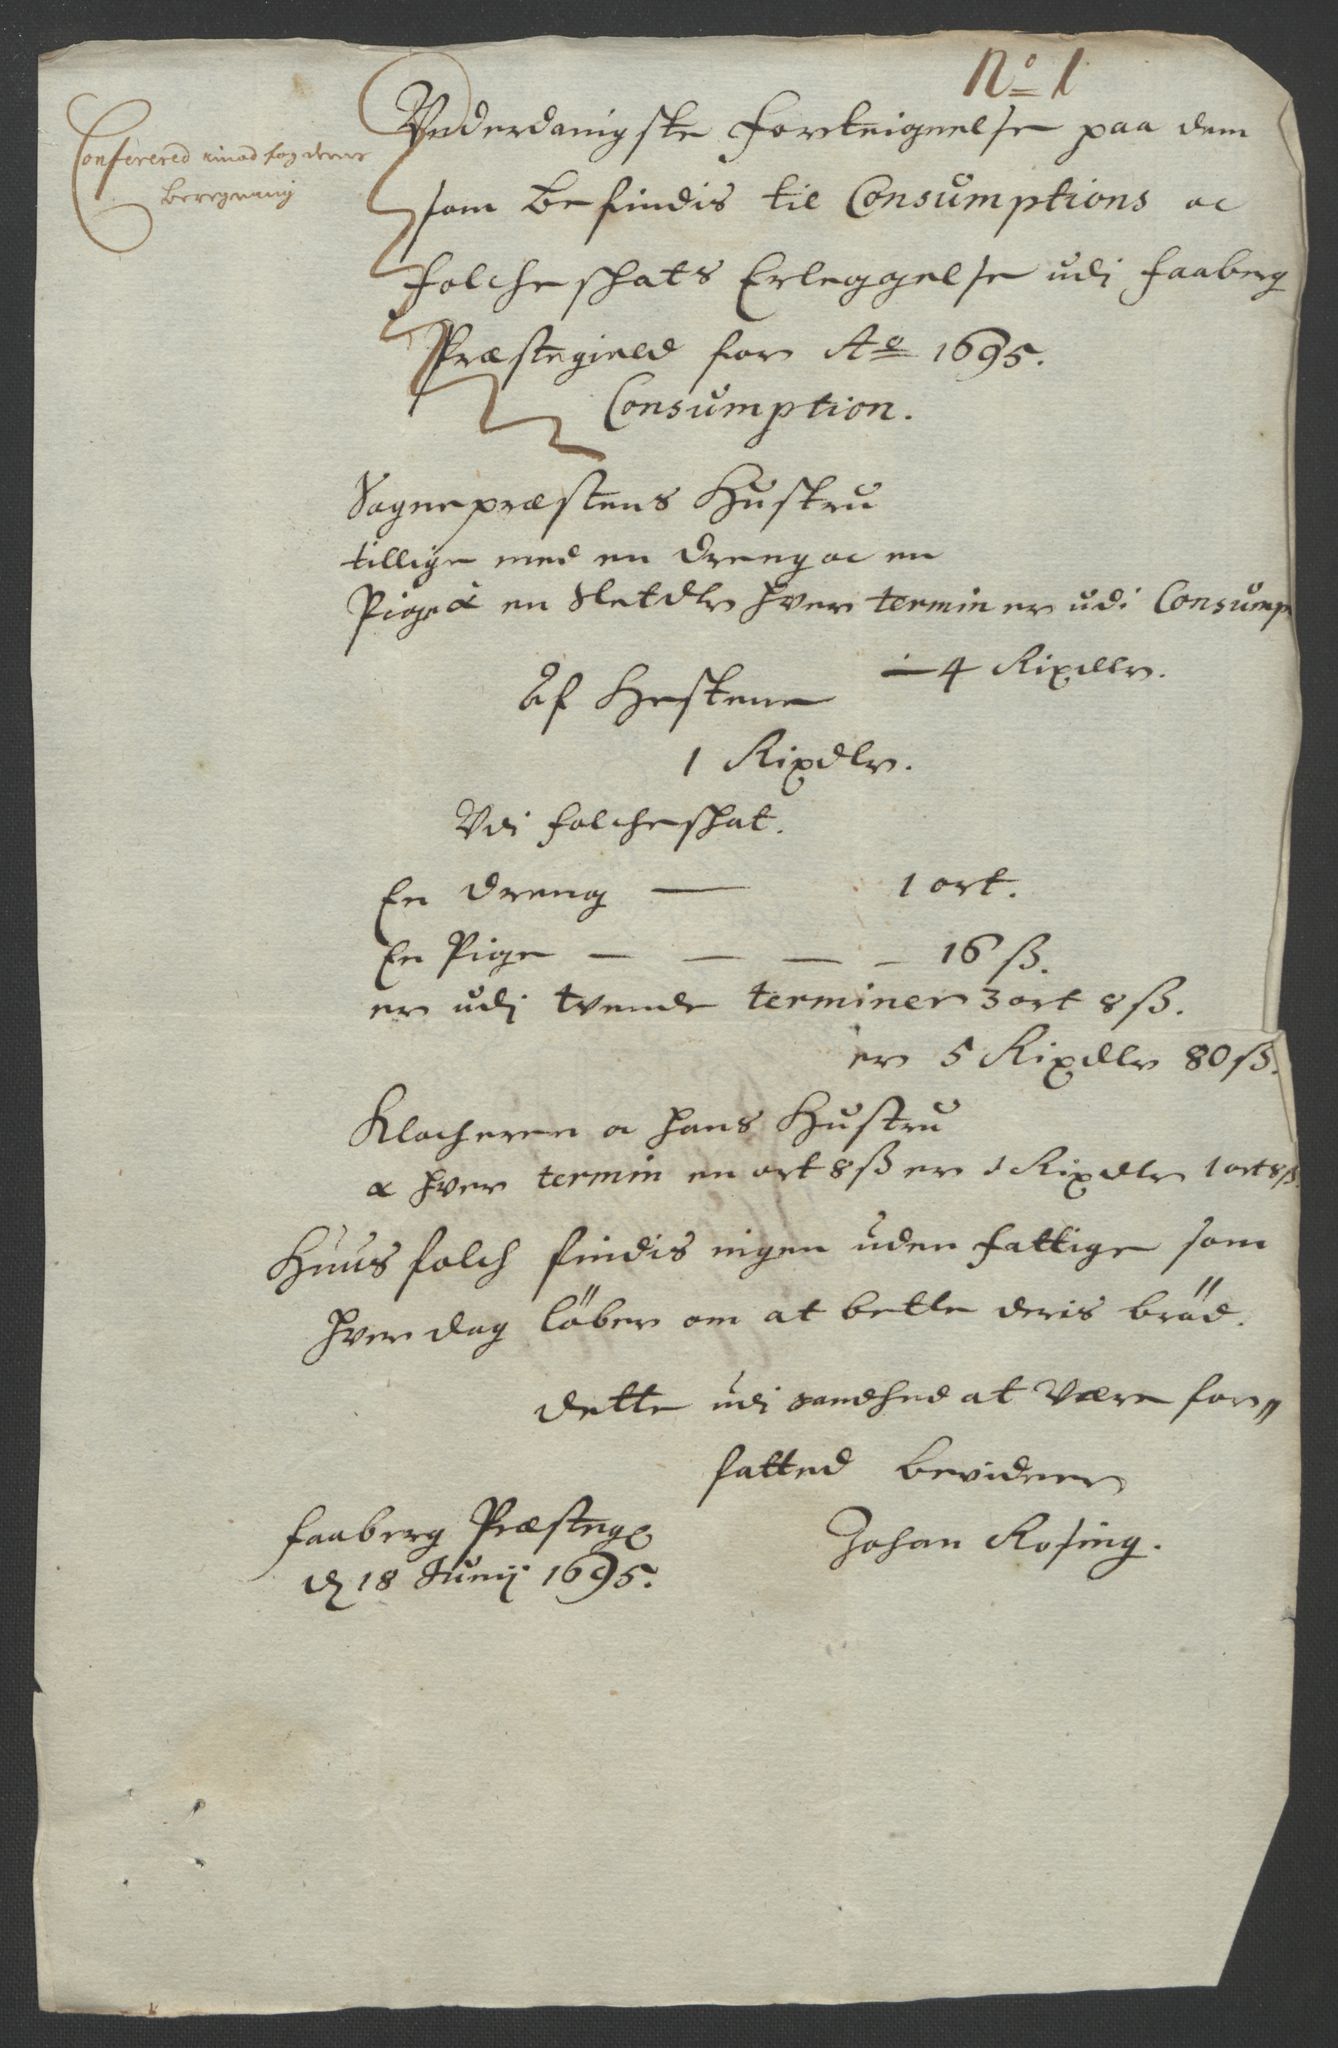 No 1
Conferered imod fogdens
beregning
Vnderdanigste forteignelse paa dem
som befindis til Consumptions oc
folcheskats Erleggelse udj faaberg
Præstegield for Ao 1695.
Consumption.
Sognepræstens Hustru
tillige med en dreng oc en
Pige à en Sletdlr hver termin er udi Consump
4 Rixdlr.
Af Hestene
1 Rixdlr.
Vdi folcheskat.
En dreng — 1 ort.
En Pige — — — — 16 ß.
er udj tvende terminer 3 ort 8 ß.
er 5 Rixdlr 80 ß.
Klocheren oc hans Hustru
à hver termin en ort 8 ß er 1 Rixdlr 1 ort 8 ß.
Huus folch findis ingen uden fattige som
hver dag löber om at betle deris bröd.
dette udi sandhed at være for〃
fatted bevidner
Johan Rosing.
faaberg Præsteg
dj 18 Junij 1695.